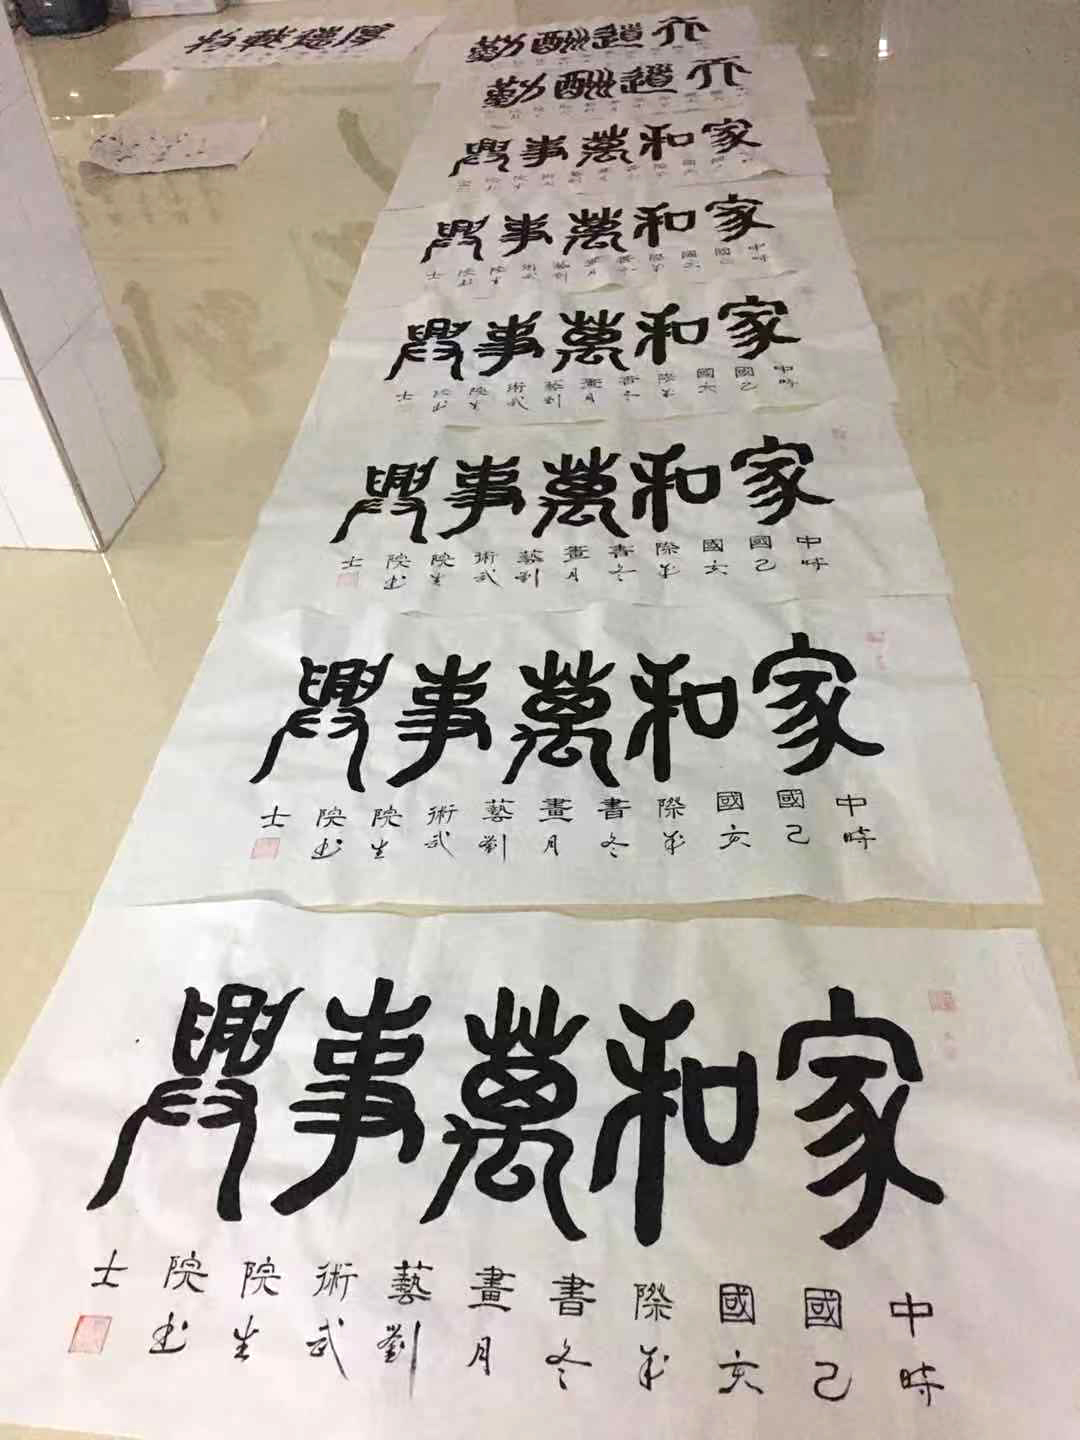 厚德載物
天道酬勤
天道酬勤
家和萬事興
家和萬事興
家和萬事興
中國國際書畫藝術院院士
時己亥年冬月劉武生書
家和萬事興
中國國際書畫藝術院院士
時己亥年冬月劉武生書
家和萬事興
中國國際書畫藝術院院士
時己亥年冬月劉武生書
家和萬事興
中國國際書畫藝術院院士
時己亥年冬月劉武生書